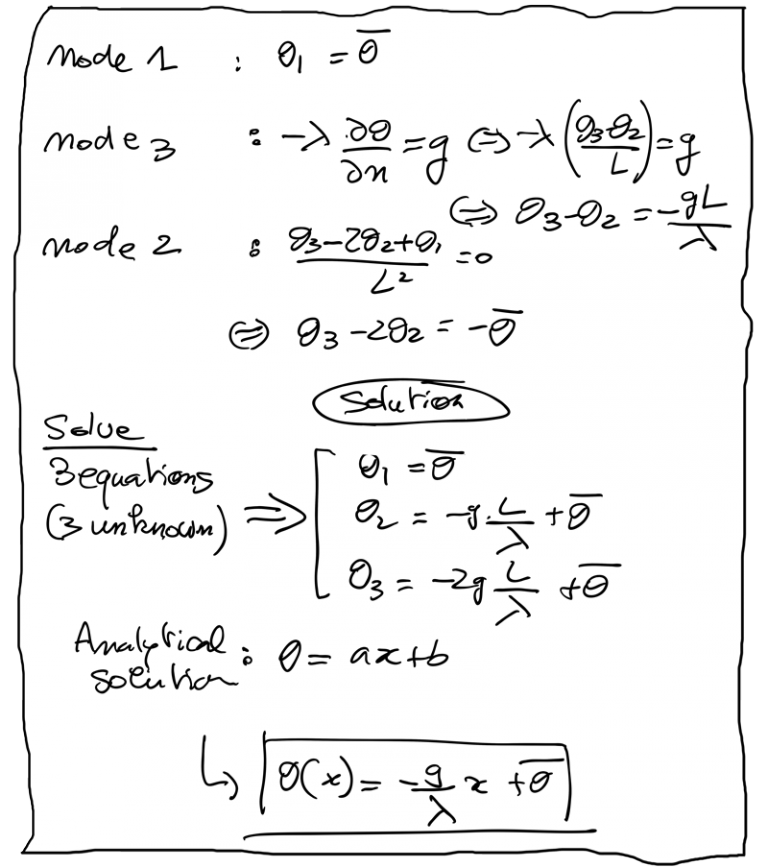 node 1 : θ₁ = θ̅
node 3 : -λ ∂θ/∂n = g ⇔ -λ ((θ₃-θ₂)/L) = g
⇔ θ₃-θ₂ = -gL/λ
node 2 : (θ₃-2θ₂+θ₁)/L² = 0
⇔ θ₃-2θ₂ = -θ̅
Solution
Solve
3 equations
(3 unknown) ⟹
θ₁ = θ̅
θ₂ = -g.L/λ + θ̅
θ₃ = -2g L/λ + θ̅
Analytical
solution : θ = ax+b
↳ θ(x) = -g/λ x + θ̅